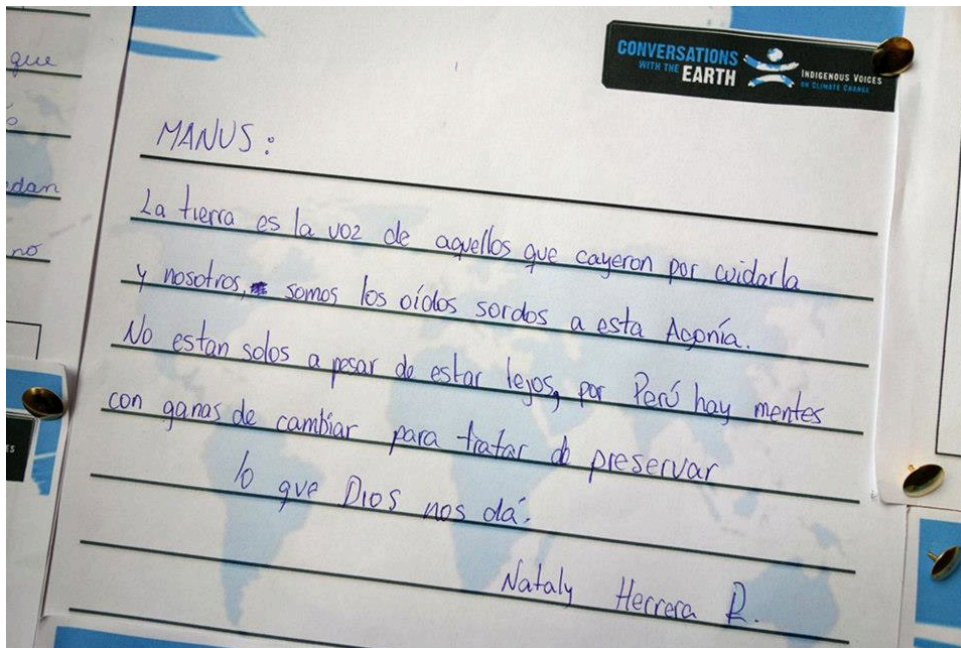 que
dan
no
ES
CONVERSATIONS
WITH THE EARTH
INDIGENOUS VOICES
ON CLIMATE CHANGE
MANUS:
La tierra es la voz de aquellos que cayeron por cuidarla
y nosotros, somos los oídos sordos a esta Agonía.
No estan solos a pesar de estar lejos, por Perú hay mentes
con ganas de cambiar para tratar de preservar
lo que Dios nos dá.
Nataly Herrera R.